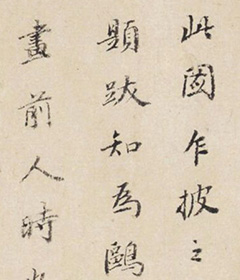 此圖乍披之
題跋知為鷗
畫前人時